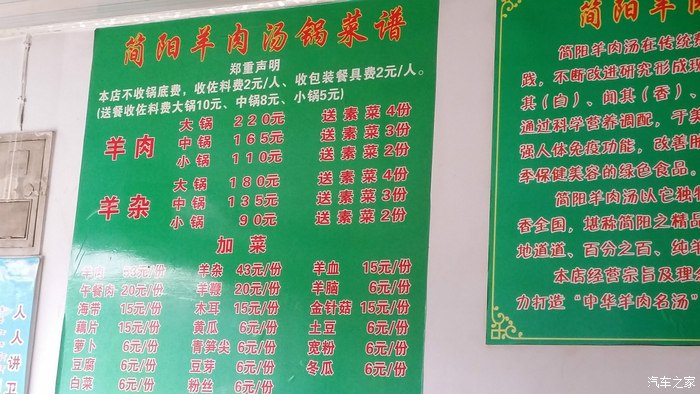 简阳羊肉汤锅菜谱
郑重声明
本店不收锅底费，收佐料费2元/人、收包装餐具费2元/人。
(送餐收佐料费大锅10元、中锅8元、小锅5元)
羊肉
大锅 220元 送素菜4份
中锅 165元 送素菜3份
小锅 110元 送素菜2份
羊杂
大锅 180元 送素菜4份
中锅 135元 送素菜3份
小锅 90元 送素菜2份
加菜
羊肉 元/份 羊杂 43元/份 羊血 15元/份
午餐肉 20元/份 羊鞭 20元/份 羊脑 6元/份
海带 15元/份 木耳 15元/份 金针菇 15元/份
藕片 15元/份 黄瓜 6元/份 土豆 6元/份
萝卜 6元/份 青笋尖 6元/份 宽粉 6元/份
豆腐 6元/份 豆芽 6元/份 冬瓜 6元/份
白菜 6元/份 粉丝 6元/份
简阳羊肉
简阳羊肉汤在传统
践，不断改进研究形成现
其（白）、闻其（香）、
通过科学营养调配，于美
强人体免疫功能，改善
季保健美容的绿色食品。
简阳羊肉汤以它独
香全国，堪称简阳之精品
地道道、百分之百、纯
本店经营宗旨及理
力打造“中华羊肉名汤”
人人讲卫
汽车之家